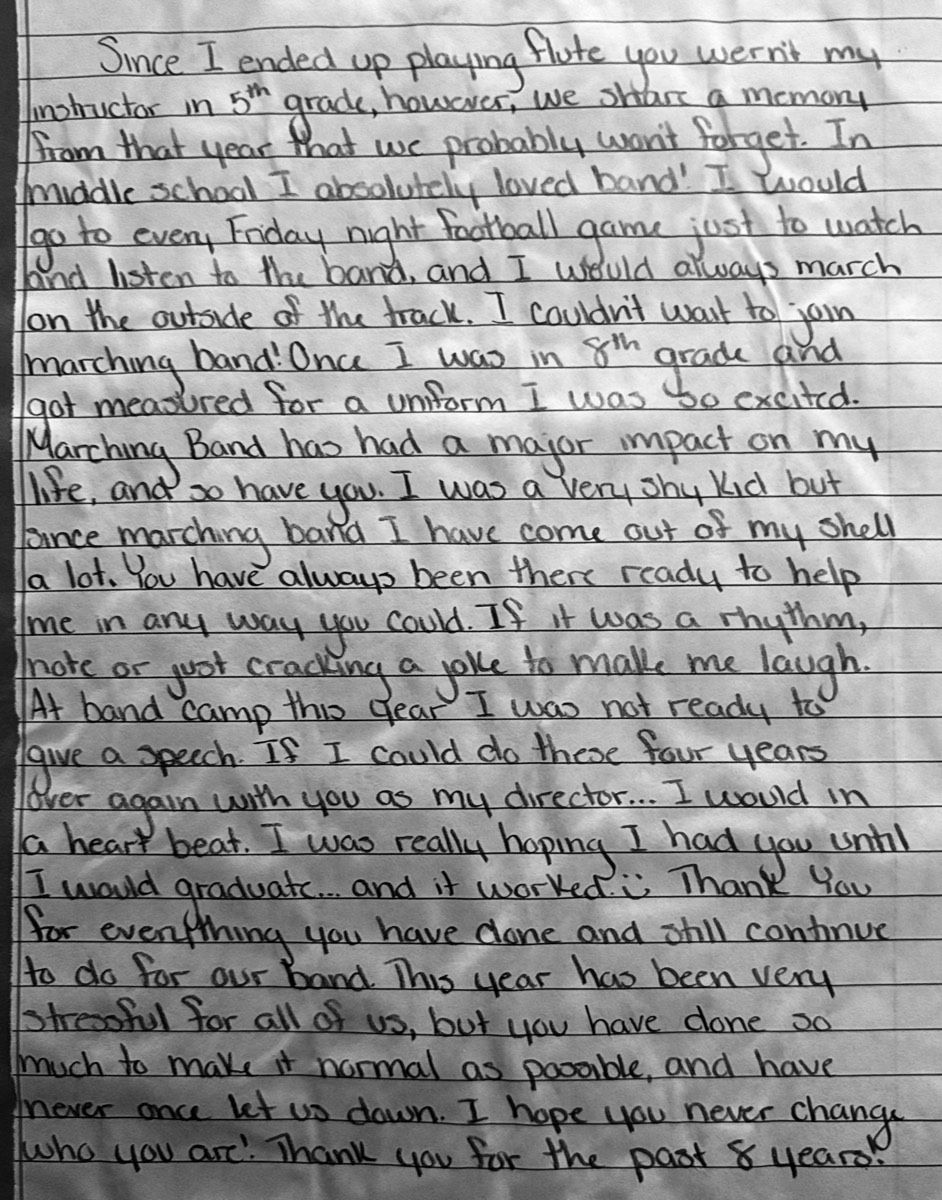 Since I ended up playing flute you wern't my
instructor in 5th grade, however, we share a memory
from that year that we probably won't forget. In
middle school I absolutely loved band! I would
go to every Friday night football game just to watch
and listen to the band, and I would always march
on the outside of the track. I couldn't wait to join
marching band! Once I was in 8th grade and
got measured for a uniform I was so excited.
Marching Band has had a major impact on my
life, and so have you. I was a very shy kid but
since marching band I have come out of my shell
a lot. You have always been there ready to help
me in any way you could. If it was a rhythm,
note or just cracking a joke to make me laugh.
At band camp this year I was not ready to
give a speech. If I could do these four years
over again with you as my director... I would in
a heart beat. I was really hoping I had you until
I would graduate... and it worked! :) Thank You
for everything you have done and still continue
to do for our band. This year has been very
stressful for all of us, but you have done so
much to make it normal as possible, and have
never once let us down. I hope you never change
who you are! Thank you for the past 8 years!